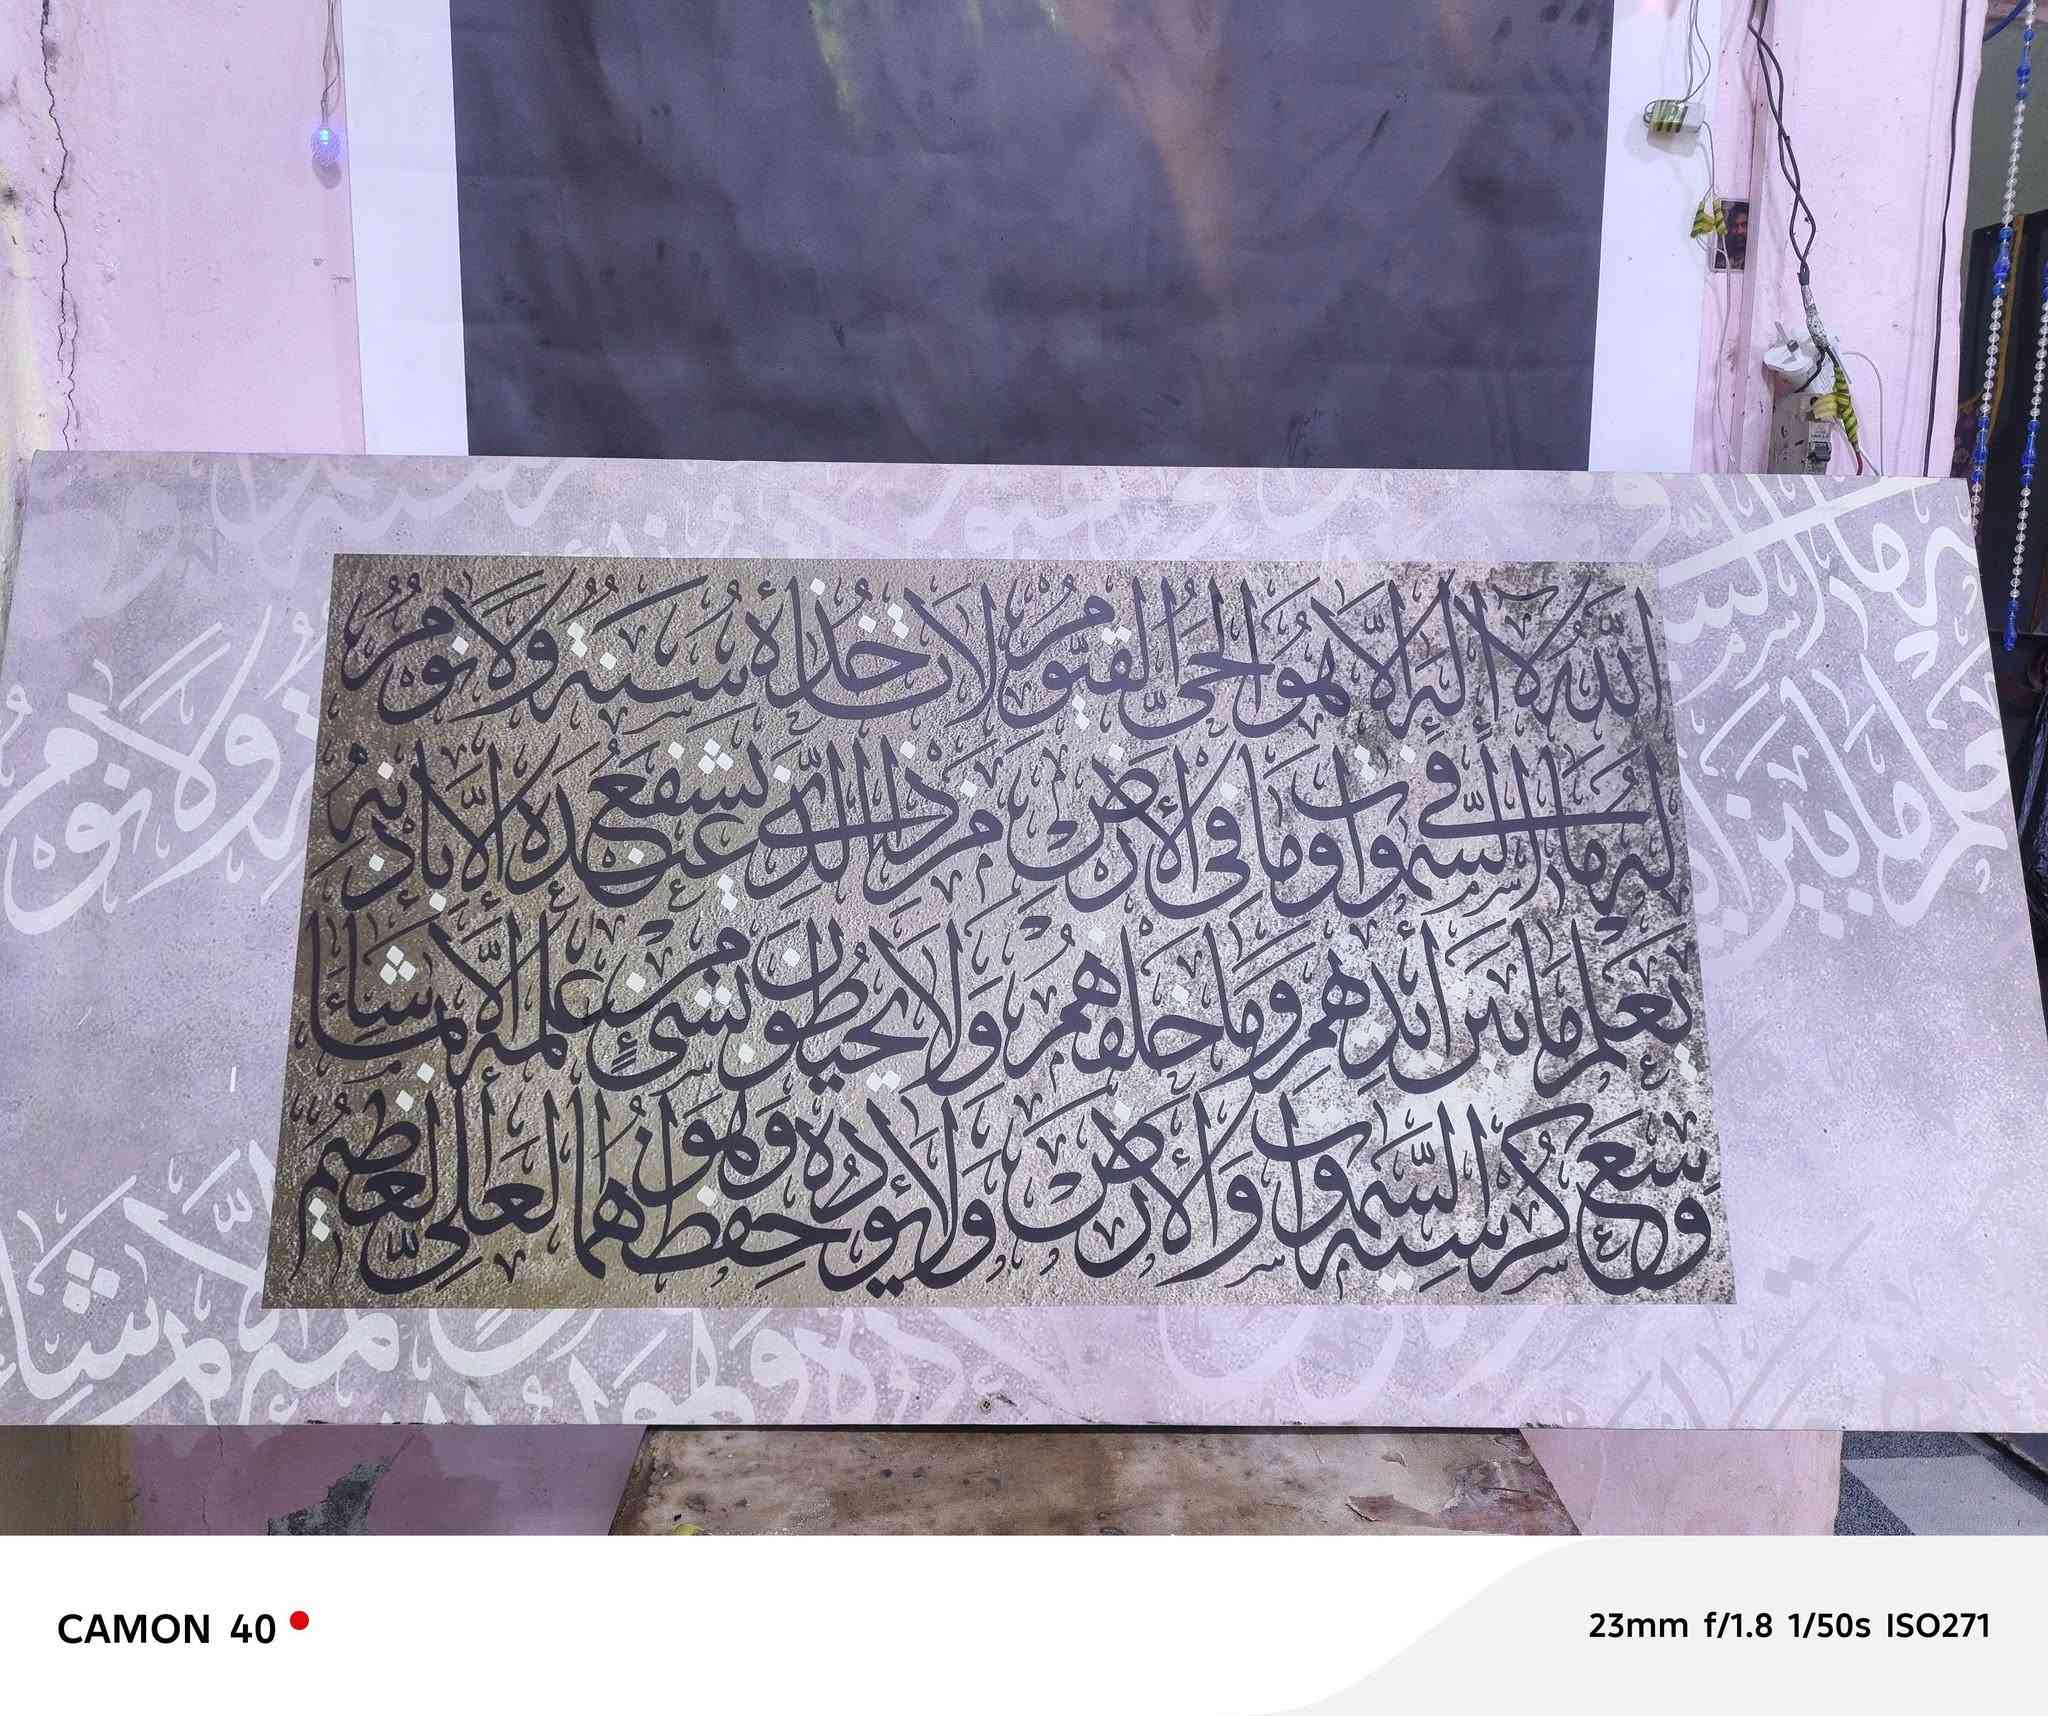 اللَّهُ لَا إِلَهَ إِلَّا هُوَ الْحَيُّ الْقَيُّومُ لَا تَأْخُذُهُ سِنَةٌ وَلَا نَوْمٌ
لَهُ مَا فِي السَّمَوَاتِ وَمَا فِي الْأَرْضِ مَنْ ذَا الَّذِي يَشْفَعُ عِنْدَهُ إِلَّا بِإِذْنِهِ
يَعْلَمُ مَا بَيْنَ أَيْدِيهِمْ وَمَا خَلْفَهُمْ وَلَا يُحِيطُونَ بِشَيْءٍ مِنْ عِلْمِهِ إِلَّا بِمَا شَاءَ
وَسِعَ كُرْسِيُّهُ السَّمَوَاتِ وَالْأَرْضَ وَلَا يَؤُدُهُ حِفْظُهُمَا وَهُوَ الْعَلِيُّ الْعَظِيمُ
CAMON 40
23mm f/1.8 1/50s ISO271